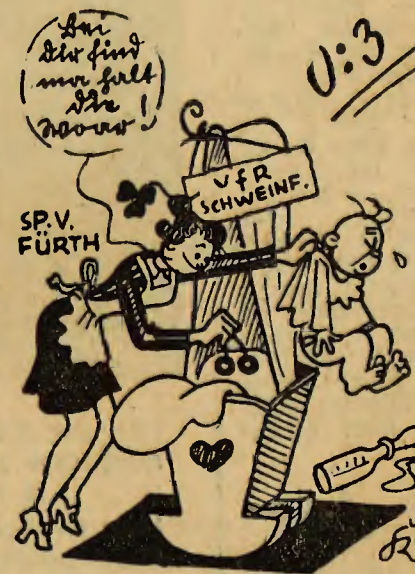 Bei
dir find
ma halt
die
Woar!
0:3
VfR
SCHWEINF.
SP.V.
FÜRTH